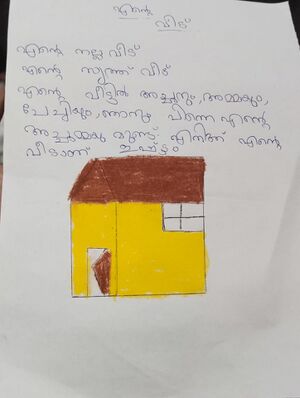 എന്റെ
വീട്
എന്റെ നല്ല വീട്
എന്റെ സ്വന്ത് വീട്
എന്റെ വീട്ടിൽ അച്ഛനും, അമ്മയും,
ചേച്ചിയും, ഞാനും പിന്നെ എന്റെ
അച്ഛമ്മയു മുണ്ട്. എനിക്ക് എന്റെ
വീടാണ് ഇഷ്ടം